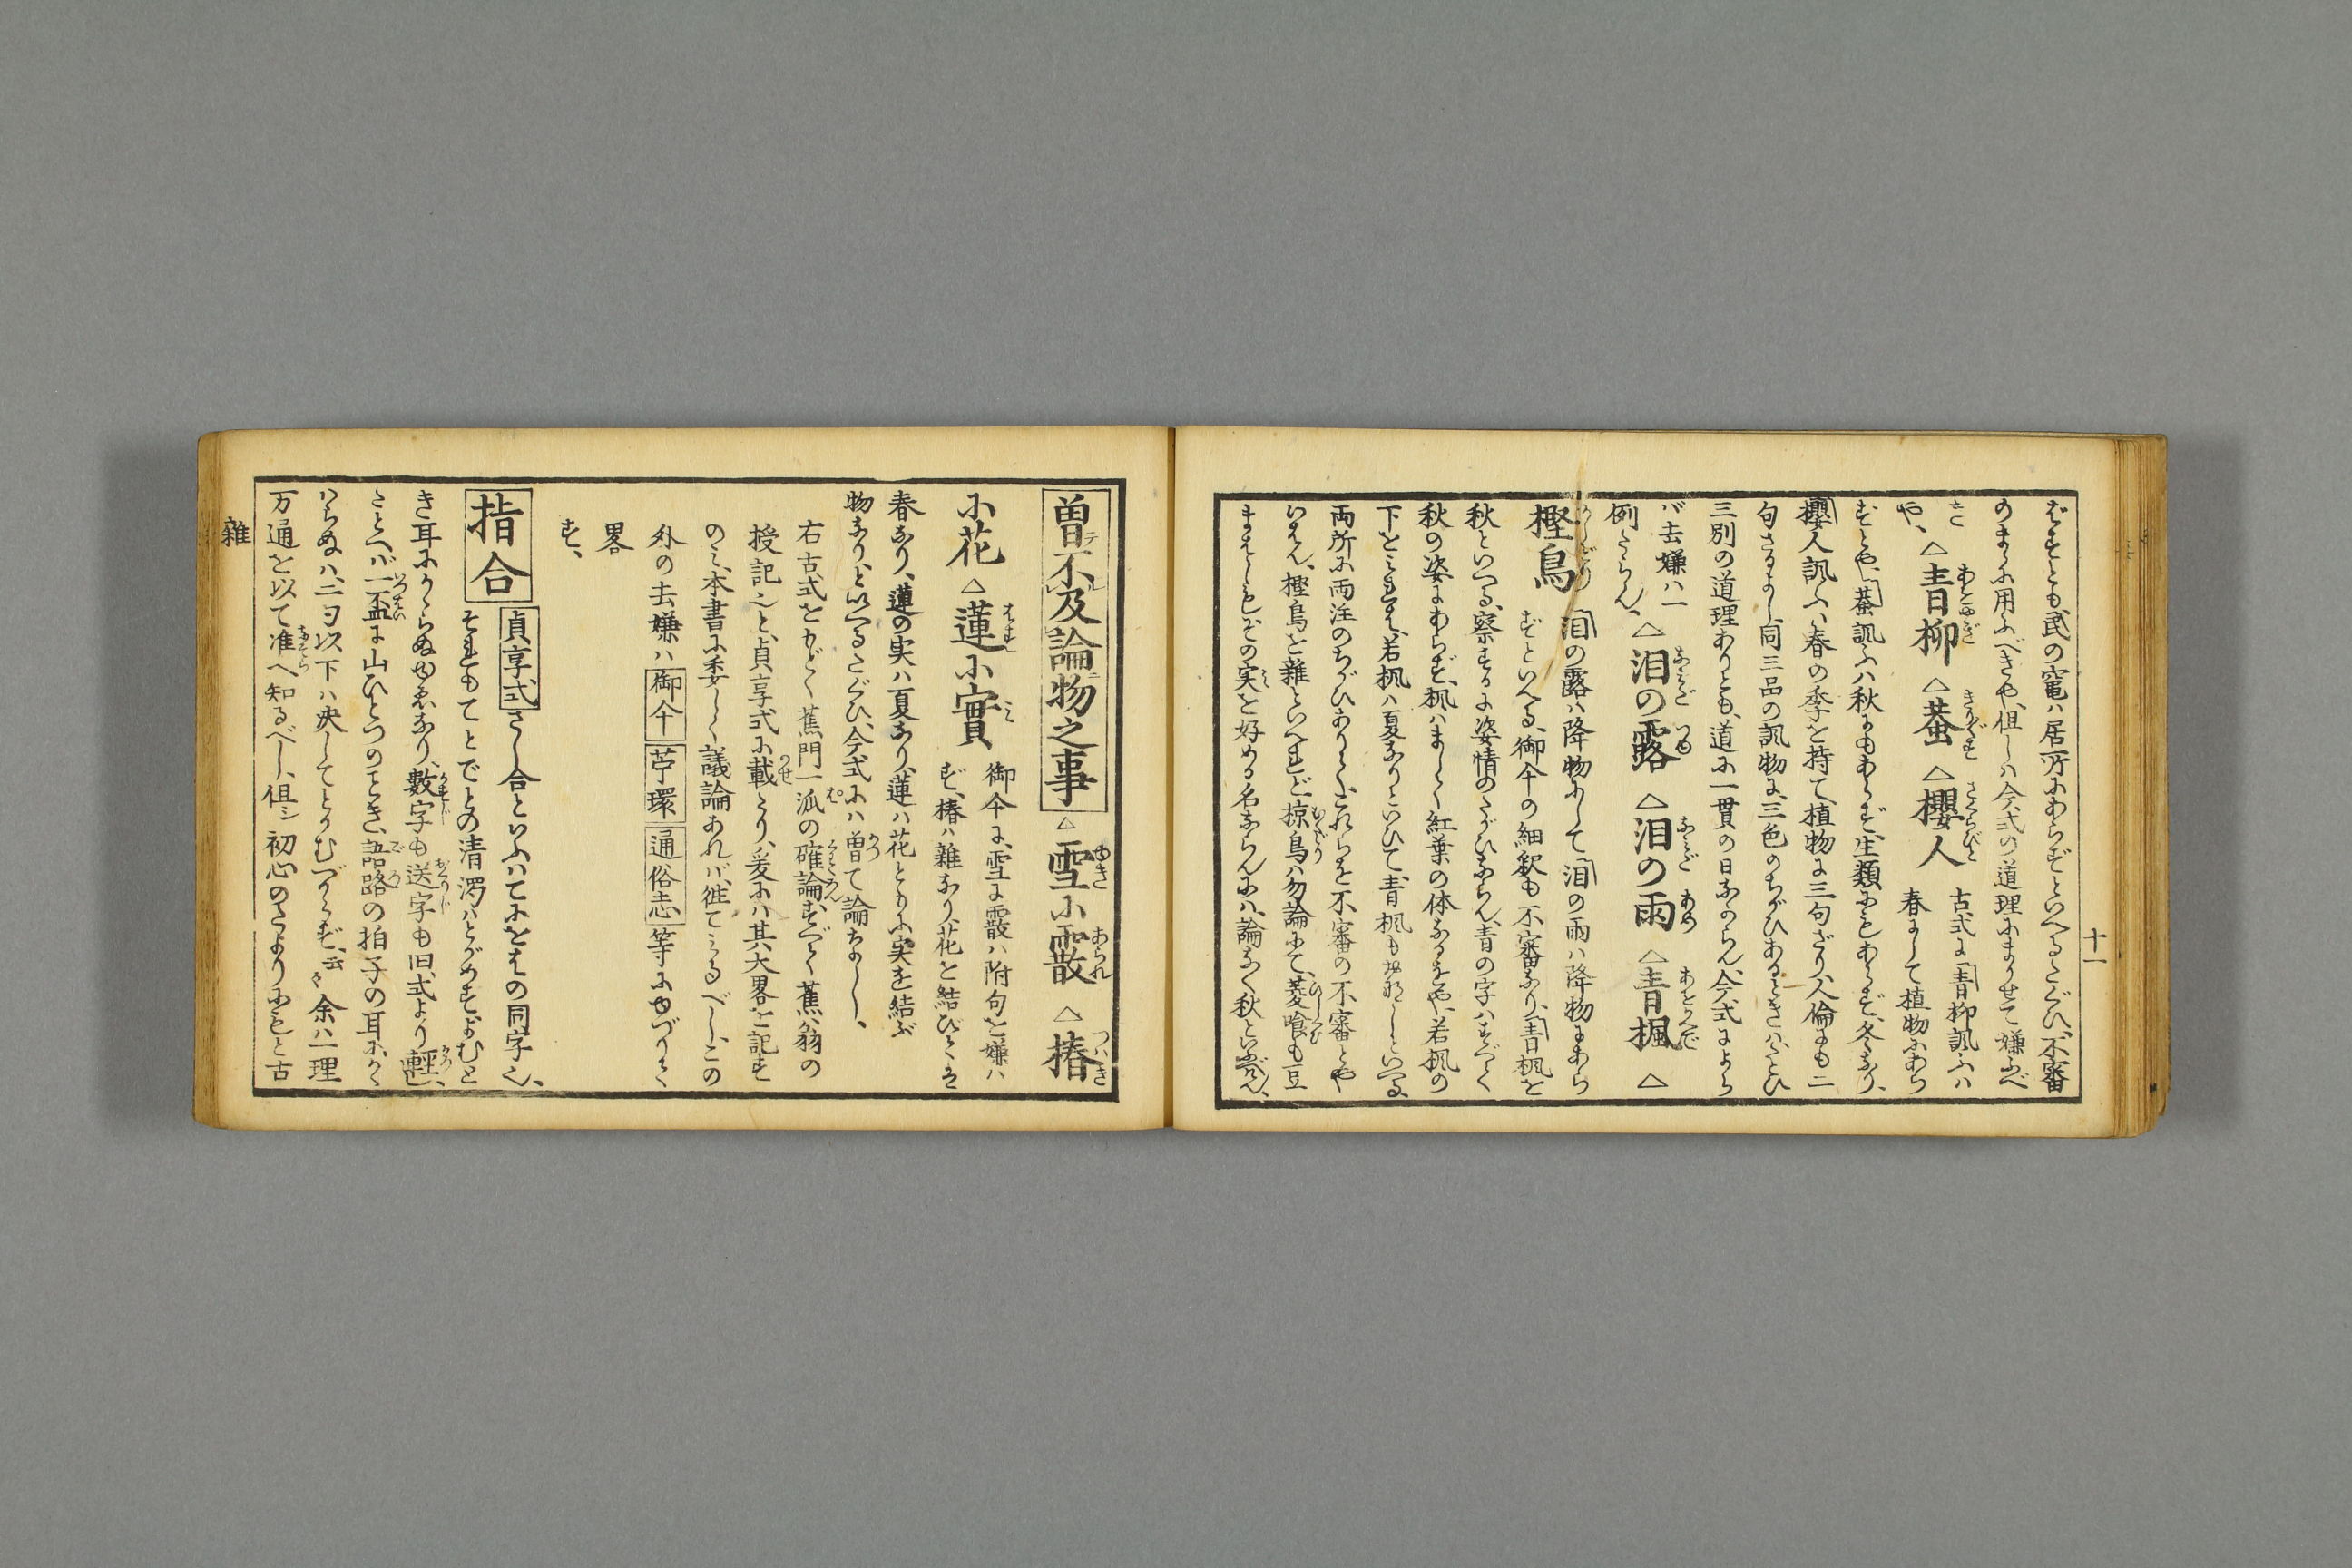 十一
ばずとも民の竃ハ居所にあらずといへるたぐひ、不審
のまゝに用ふべきや、但しハ今式の道理にまかせて嫌ふべ
きや、△青柳 △蛬 △櫻人 古式に「青柳諷ふハ春にして植物にあら
ずとや、「蛬諷ふハ秋にもあらず、生類にもあらず、冬なり、
「櫻人諷ふハ春の季を持て、植物に三句ざり、人倫にも二
句さるよし、同三品の諷物に、三色のちがひあるときハ、たとひ
三別の道理ありとも、道に一貫の日なからん、今式によら
バ去嫌ハ一例たらん、△泪の露 △泪の雨 △青楓 △
樫鳥 「泪の露ハ降物にして「泪の雨ハ降物にあらずといへる、御傘の細釈も不審なり、「青楓を
秋といへる、察するに姿情のたがひならん、青の字ハすべて
秋の姿にあらず、楓ハまして紅葉の体なるをや、若楓の
下をみれば、若楓ハ夏なりといひて、青楓も
両所に両注のちがひありて、これらを不審の不審とや
いはん、樫鳥を雑といへれど、椋鳥ハ勿論にて、菱喰も豆
まはしもその実を好める名ならんにハ、論なく秋といふべけん、
曽テ不レ及論物ニ之事 △雪に霰 △椿
に花 △蓮に實 御傘に、雪に霰ハ附句を嫌ハず、椿ハ雜なり、花と結びてハ
春なり、蓮の実ハ夏なり、蓮ハ花とともに実を結ぶ
物なり、といへるたぐひ、今式にハ曽て論なし、
右古式をもどく蕉門一派の確論、すべて蕉翁の
授記也と、貞享式に載たり、爰にハ其大畧を記す
のミ、本書に委しく議論あれバ、徃てミるべし、この
外の去嫌ハ御傘 苧環 通俗志等にゆづりて
畧
す、
指合 貞享式 さし合といふハてにをはの同字也、
それもてとでとの清濁ハとがめず、よむと
き耳にかゝらぬゆゑなり、數字も送字も旧式より輕し、
たとへバ一盃に山ひとつのごとき、語路の拍子の耳にかゝ
ハらぬハ、二ヨ以下ハ决してとがむべからず、云々 余ハ一理
万通を以て准へ知るべし、但シ初心のたよりにもと古
雜